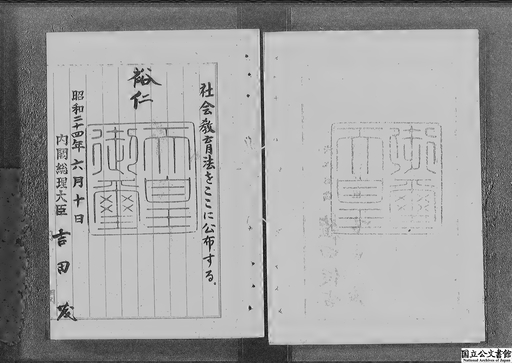 社会教育法をここに公布する。
裕仁
天皇
御璽
昭和二十四年六月十日
内閣総理大臣 吉田茂
国立公文書館
National Archives of Japan